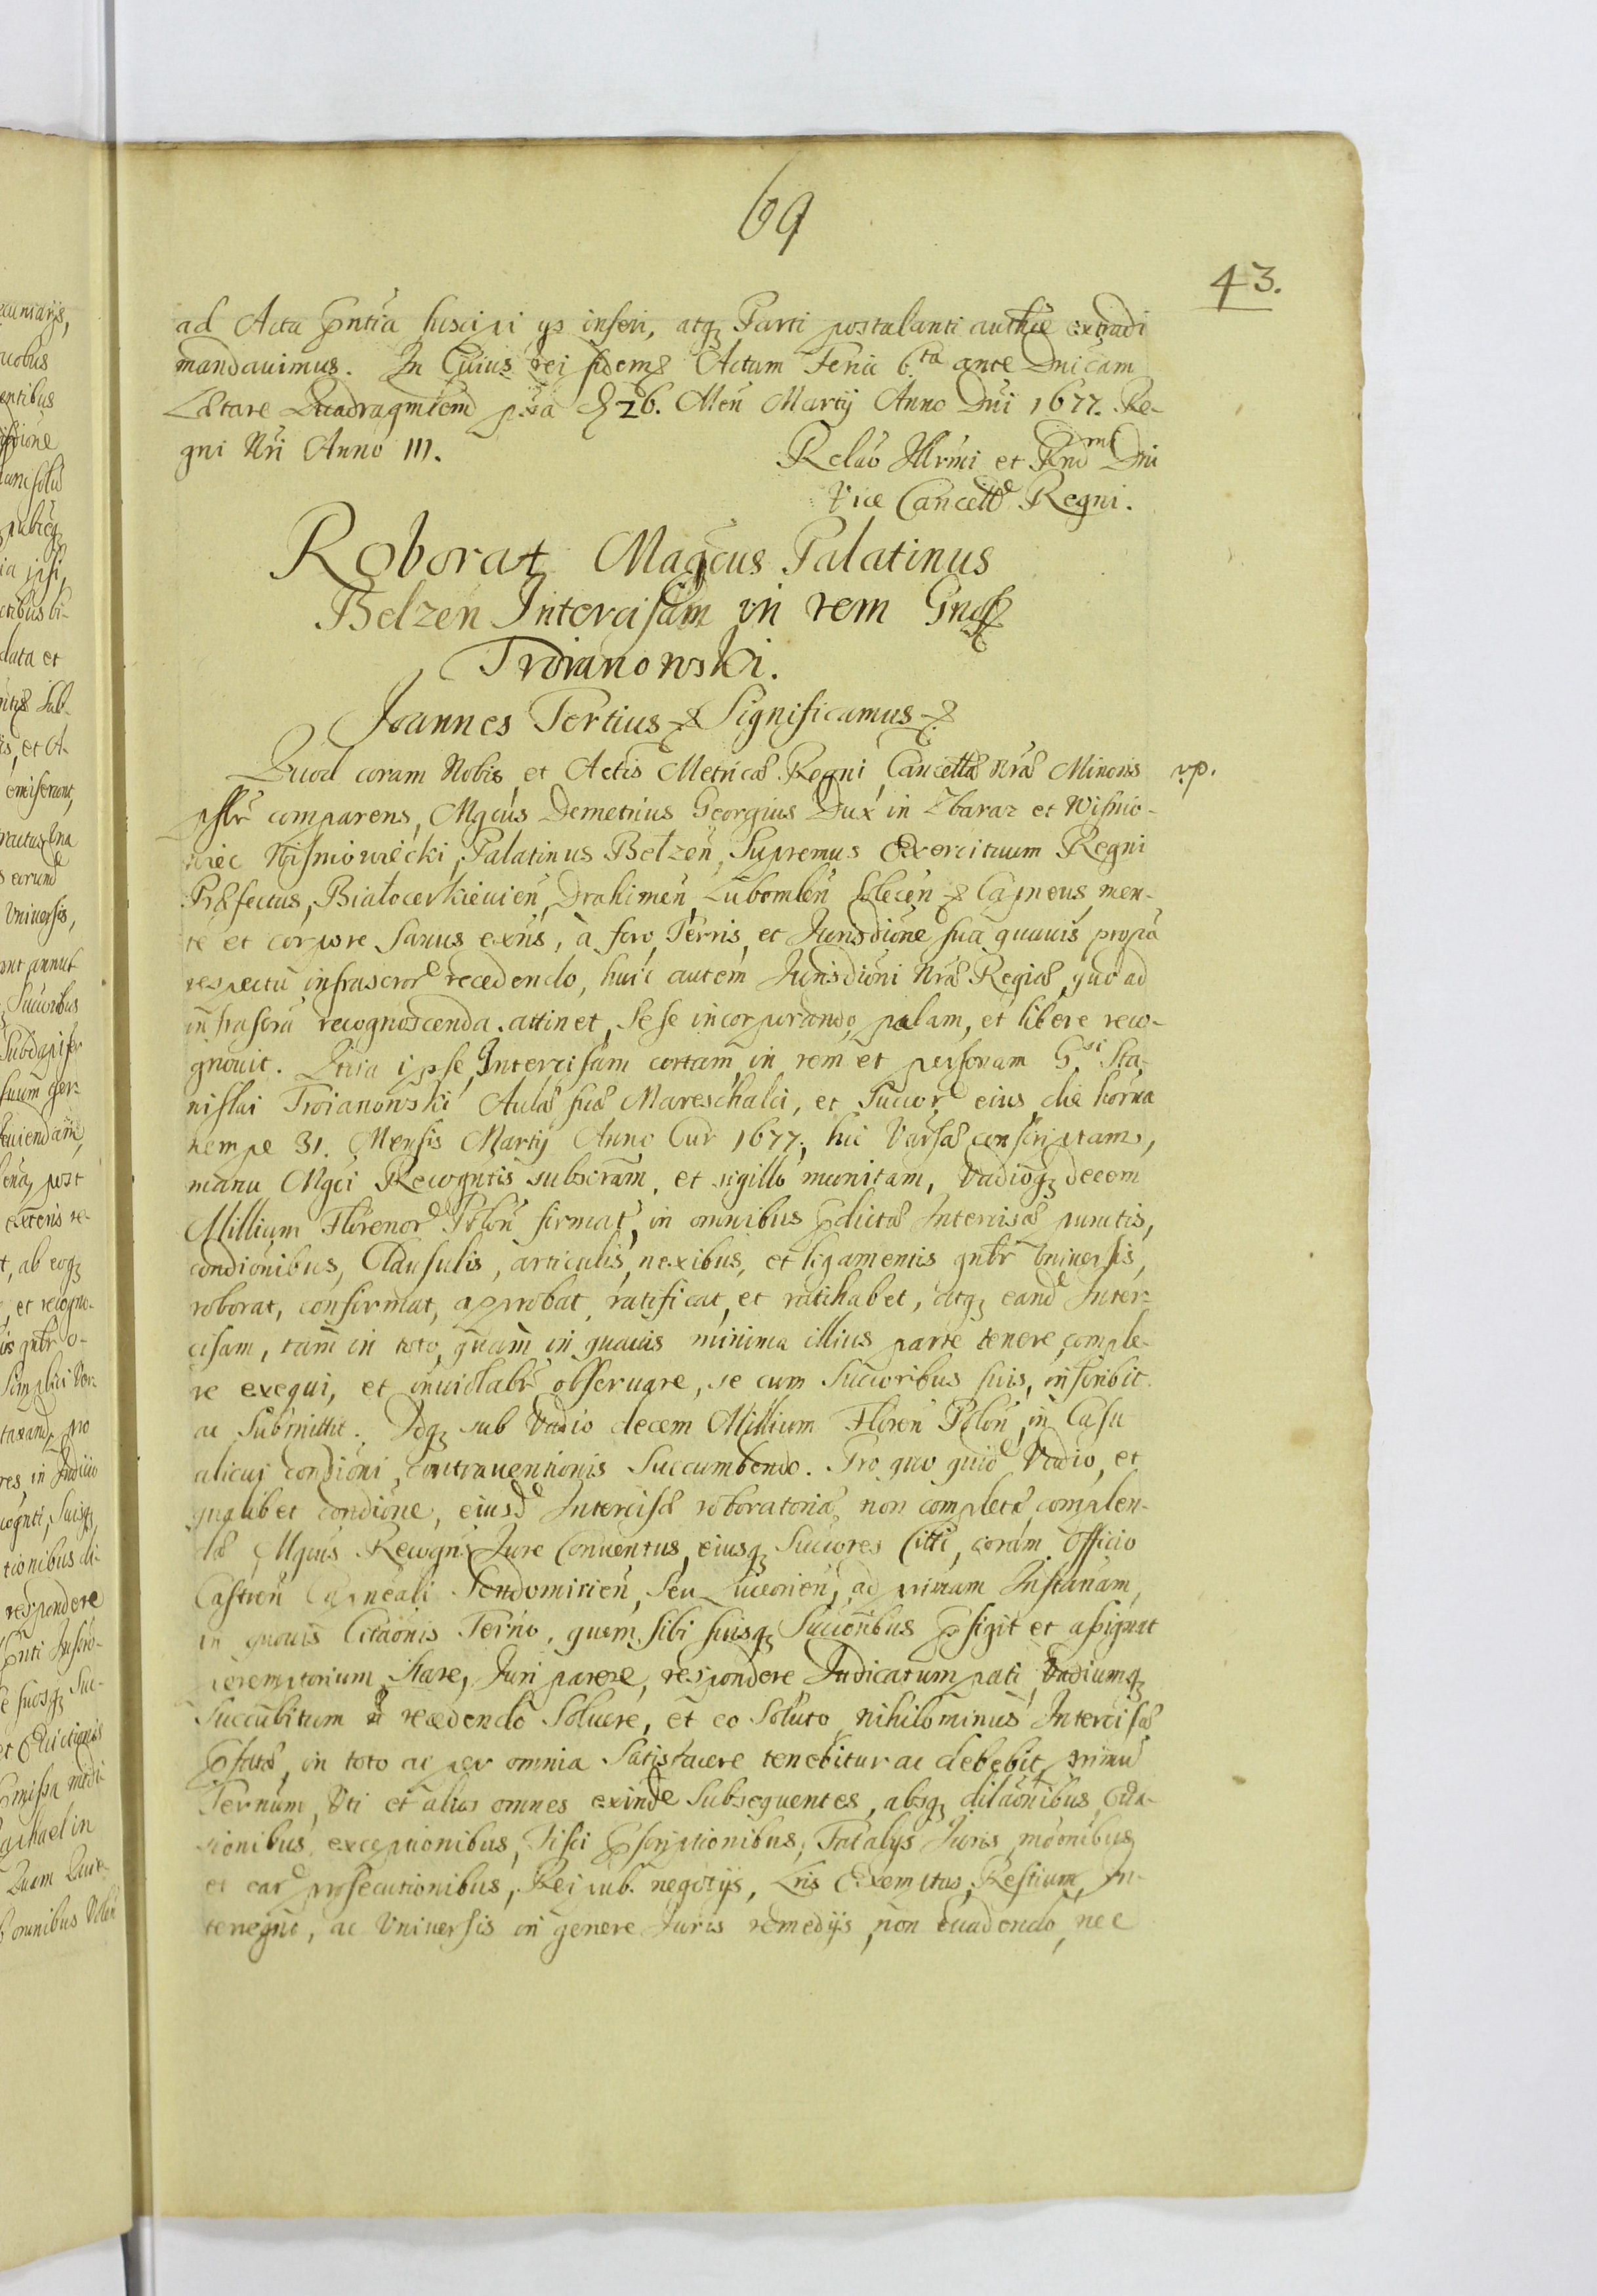 69
43.
ad Acta pntia suscipi ys inseri, atq Parti postalanti authce extradi
mandauimus. In Cuius rei fidem Actum Feria 6.ta ante Dnicam
Lætare Quadragmlem pxa 26. Men Martij Anno Dni 1677. Re-
gni Nri Anno III.
Relāo Illrmi et Rndmi Dni
Vice Cancell Regni.
Roborat Magcus Palatinus
Belzen Intercisam in rem Gnosi
Troianowski.
Joannes Tertius Significamus
Quod coram Nobis et Actis Metricæ Regni Cancellæ Nræ Minoris
v.p.
psllr comparens, Mgcus Demetrius Georgius Dux in Zbaraz et Wisnio-
wiec Wisniowiecki, Palatinus Belzen, Supremus Exercituum Regni
Præfectus, Białocerkieuien, Drahimen, Lubomlen Solecen Capneus, men-
te et corpore sanus exns, à foro, Terris, et Jurisdione sua quauis propa
respectu infrascror recedendo, huic autem Jurisdioni Nræ Regiæ, quo ad
infrascra recognoscenda attinet, Sese incorporando, palam, et libere reco-
gnouit. Quia ipse Intercisam certam in rem et personam G.si Sta-
nislai Troianowski Aulæ suæ Mareschalci, et Succor eius, die horna
nempe 31. Mensis Martij Anno Cur 1677. hic Varsæ conscriptam,
manu Mgci Recogntis subscram, et sigillo munitam, Vadioq decem
Millium Florenor Polon firmat, in omnibus pdictæ Intercisæ punctis,
condionibus, Clausulis, articulis, nexibus, et ligamentis gnlr Vniuersis,
roborat, confirmat, approbat, ratificat, et ratihabet, atq eand Inter-
cisam, tam in toto, quam in quauis minima illius parte tenere, comple-
re exequi, et inuiolabr obseruare, se cum Succoribus suis, inscribit
ac submittit. Idq sub Vadio decem Millium Floren Polon, in Casu
alicui condioni, contrauentionis Succumbendo. Pro quo quid Vadio, et
qualibet condione, eiusd Intercisæ roboratoriæ, non completæ, complen-
dæ Mgcus Recogns Jure Conuentus, eiusq Succores Citti, coram Officio
Castren Capneali Sendomirien, Seu Luceorien, ad primam Instanam,
in quouis Citaonis Terno, quem sibi suisq Succoribus pfigit et assignat
peremptorium Stare, Juri parere, respondere, Judicatum pati, Vadiumq
Succubitum recedendo Soluere, et eo soluto nihilominus Intercisæ
pfatæ, in toto ac per omnia Satisfacere tenebitur ac debebit, primū
Ternum, Uti et alios omnes exinde Subsequentes, absq dilaonibus, Eua-
sionibus, exceptionibus, Fisci pscriptionibus, Fatalijs Juris, moonibus
et ear prosecutionibus, Reipub. negotijs, Lris Exemptus, Restium, In-
teregno, ac Vniuersis in genere Juris remedijs, non euadendo, nec